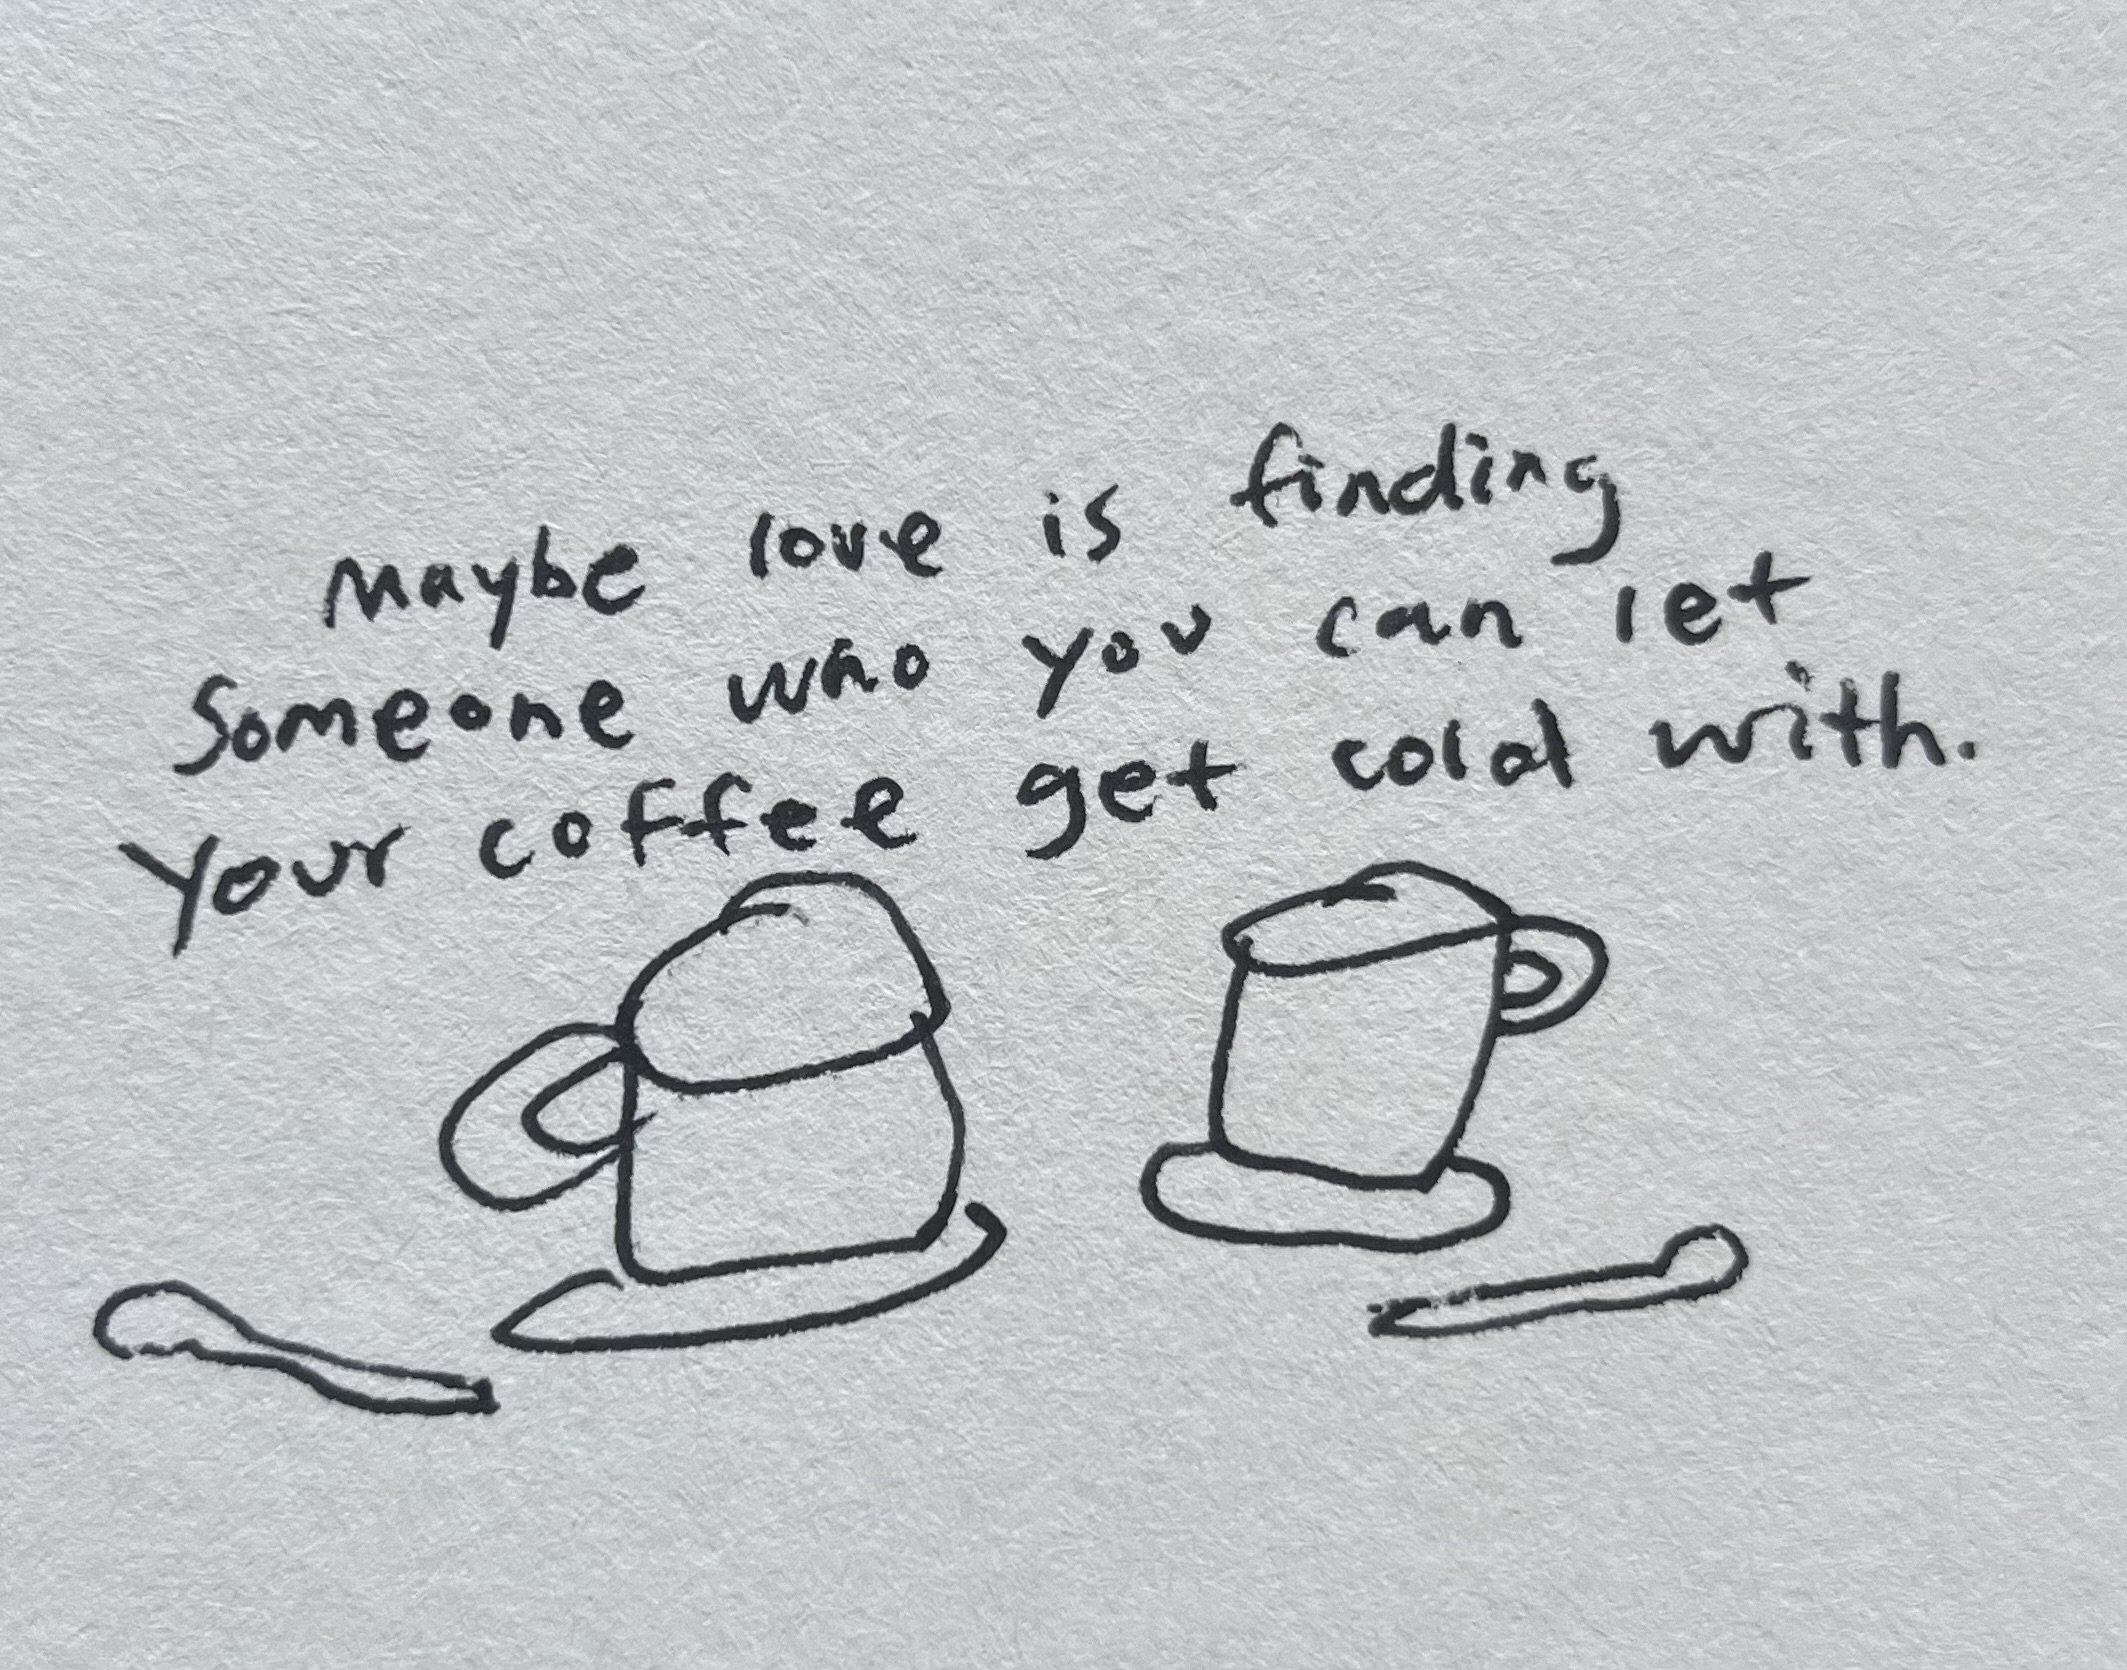 Maybe love is finding
Someone who you can let
Your coffee get cold with.